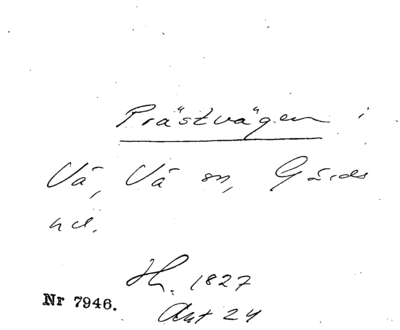 Prästvägen i
Vä, Vä sn, Gärds
hd.
Hh. 1827
Nr 7946.
Akt 24